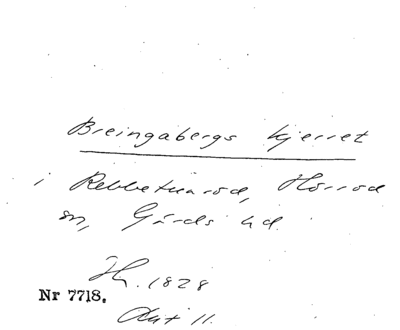 Breingabergs kjerret
i Rebbetuaröd, Hörröd
sn, Gärds hd.
H. 1828
Nr 7718.
Akt 11.